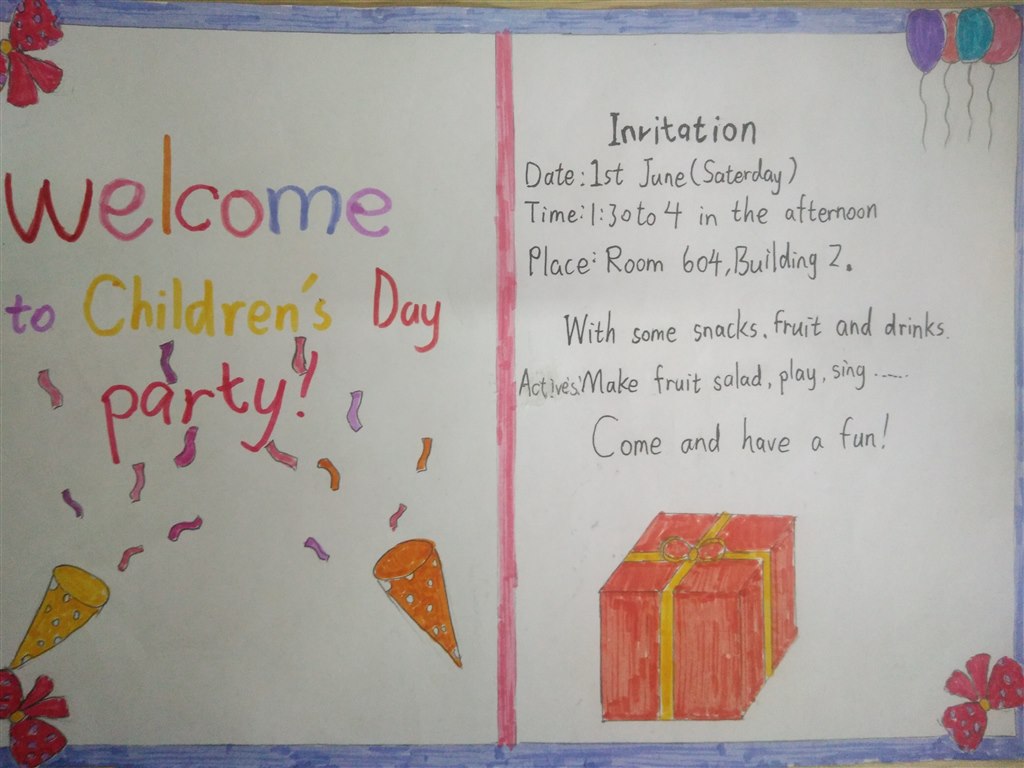 Welcome
to Children's Day
party!
Invitation
Date:1st June(Saterday)
Time:1:30 to 4 in the afternoon
Place: Room 604, Building 2.
With some snacks, fruit and drinks.
Actives: Make fruit salad, play, sing ......
Come and have a fun!